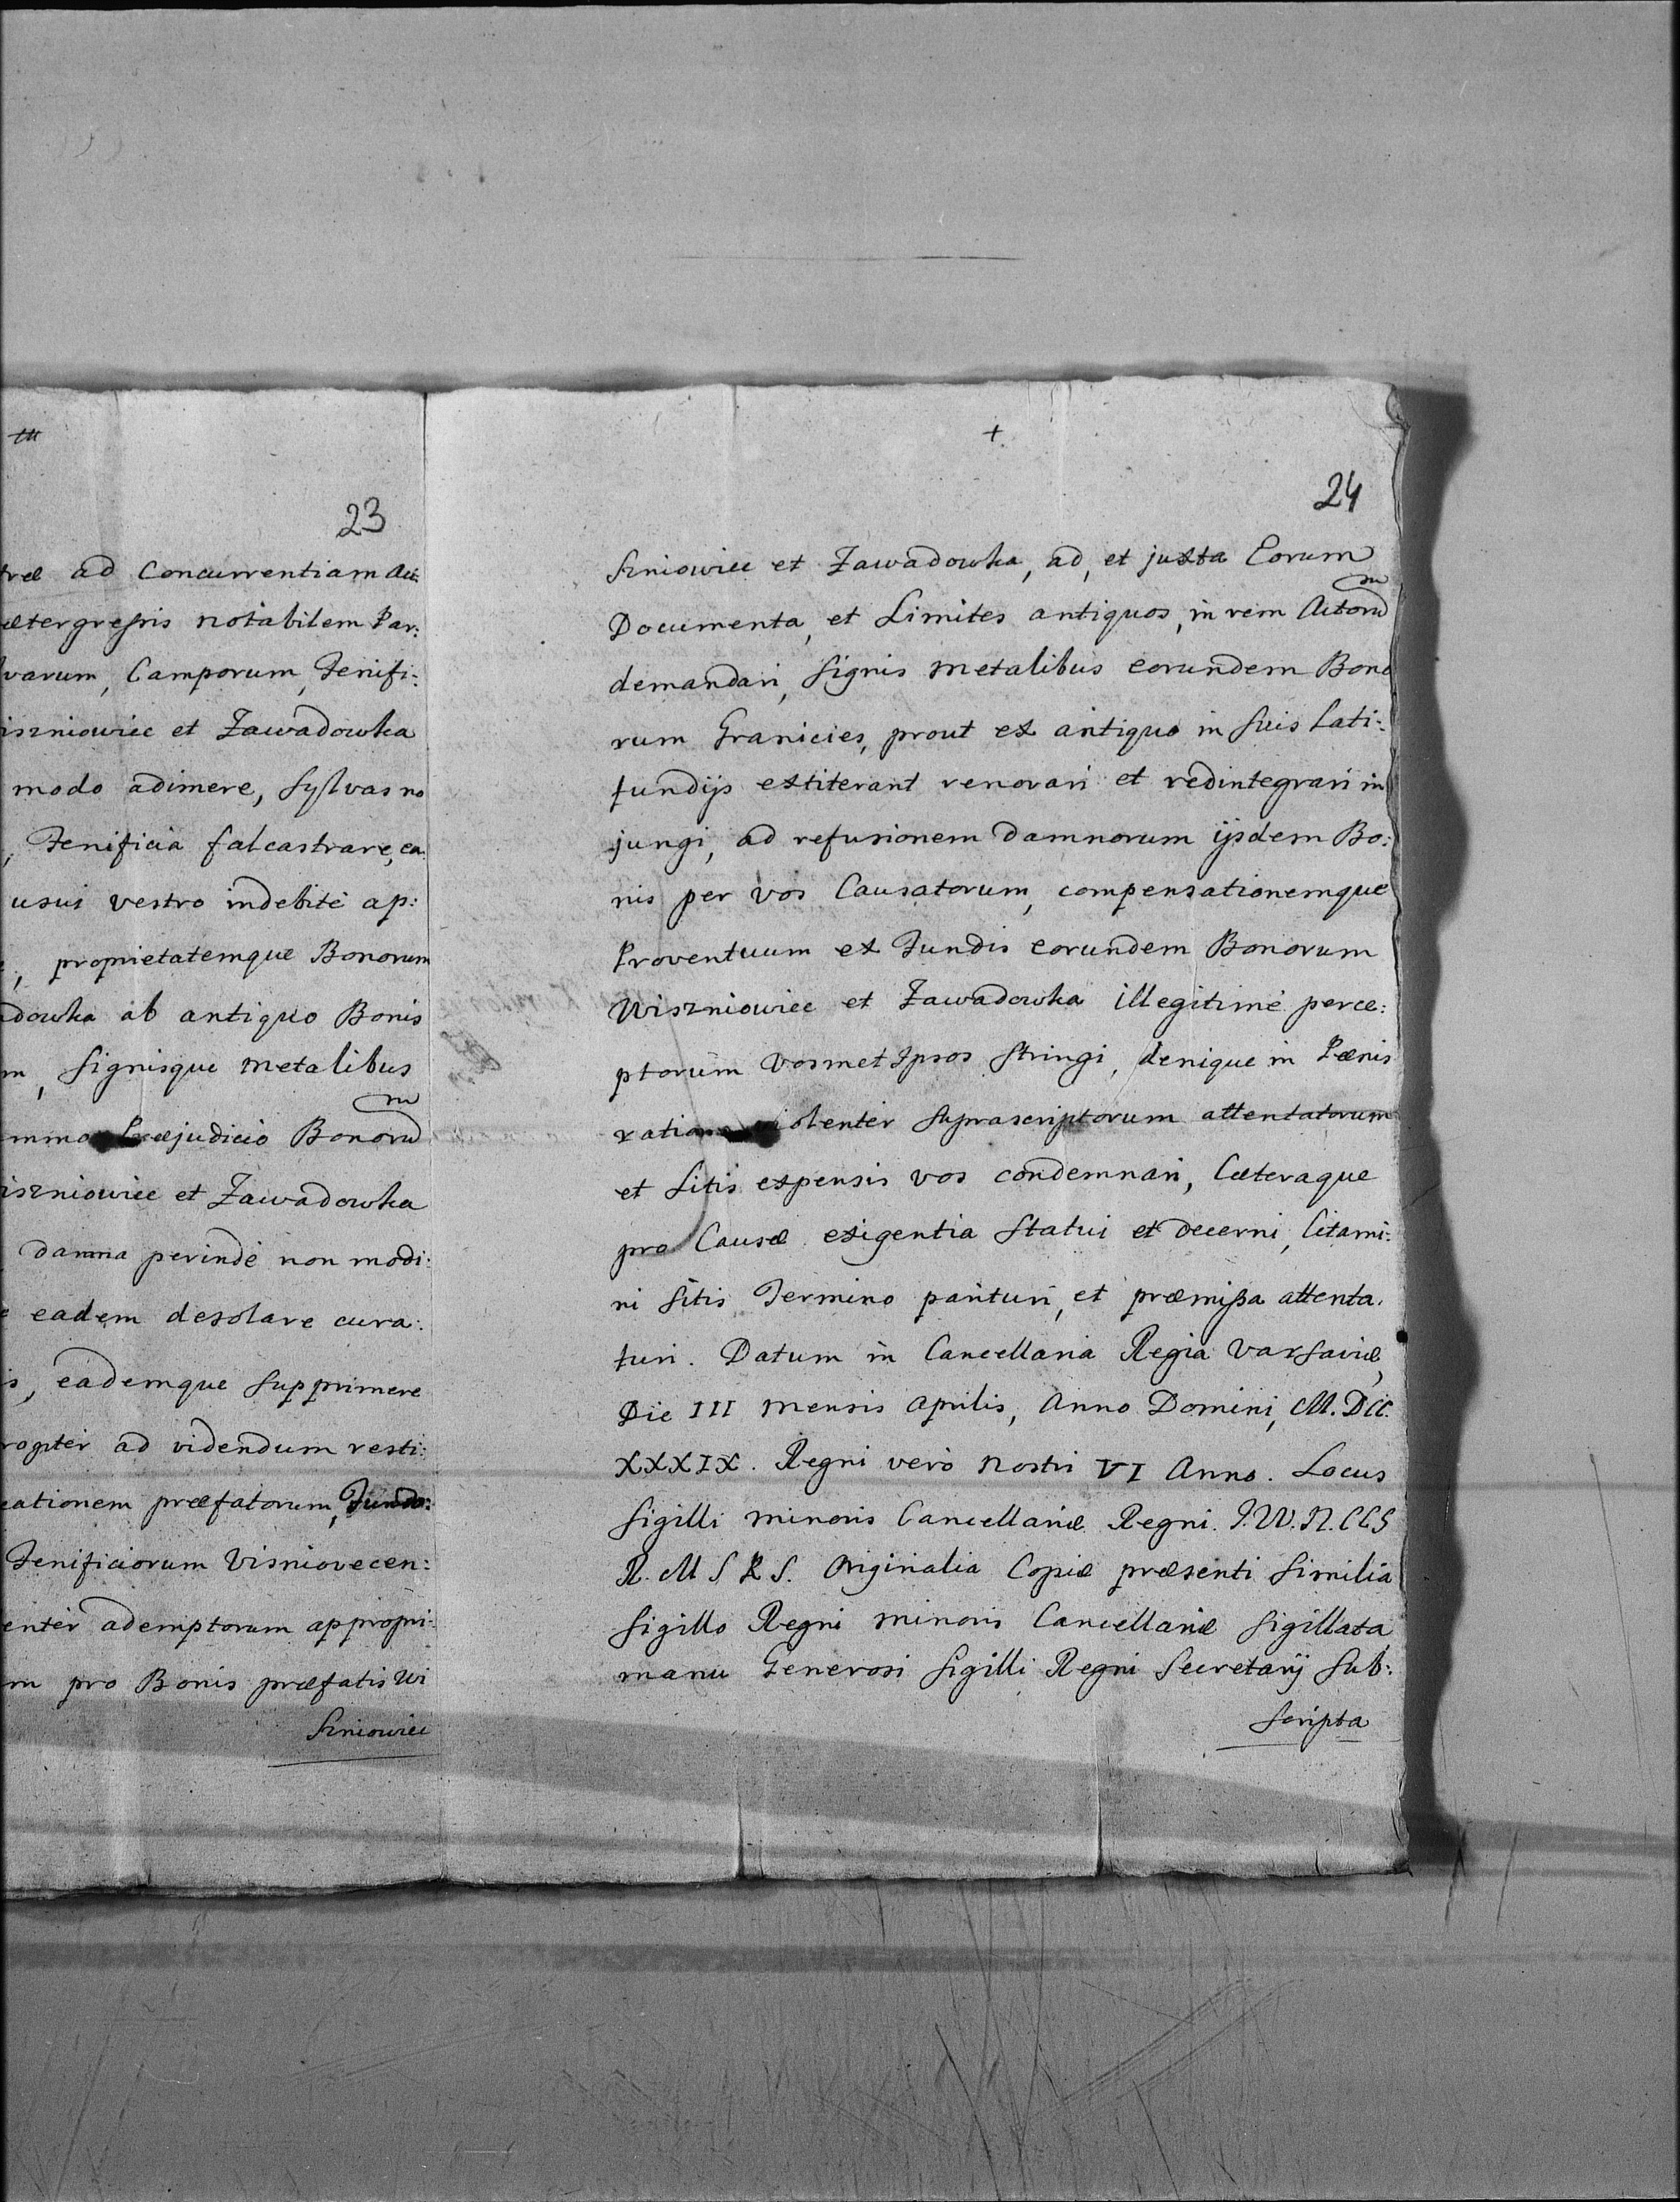 23
træ ad Concurrentiam Act:
ætergressis notabilem Par:
lvarum, Camporum, Fenifi:
iszniowiec et Zawadowka
modo adimere, Sylvas no
, Fenificia falcastrare, ea
usui vestro indebitè ap:
e, proprietatemque Bonorum
adowka ab antiquo Bonis
m, Signisque metalibus
mmo Præjudicio Bonorum
iszniowiec et Zawadowka
damna perindè non modi:
e eadem desolare cura:
s, eademque supprimere
ropter ad videndum resti:
cationem præfatorum, Fundo:
Fenificiorum Visniovecen:
entèr ademptorum appropri:
m pro Bonis præfatis Wi
szniowiec
+
24
szniowiec et Zawadowka, ad, et juxta Eorum
Documenta, et Limites antiquos, in rem Actorum
demandari, Signis metalibus eorundem Bono
rum Granicies, prout ex antiquo in suis Lati:
fundijs extiterant renovari et redintegrari in
jungi, ad refusionem damnorum ijsdem Bo:
nis per vos Causatorum, compensationemque
Proventuum ex Fundis eorundem Bonorum
Wiszniowiec et Zawadowka illegitimè perce:
ptorum vosmet Ipsos stringi, denique in Pænis
ratione violentèr suprascriptorum attentatorum
et Litis expensis vos condemnari, Cæteraque
pro Causæ exigentia Statui et decerni, Citami:
ni sitis Termino parituri, et præmissa attenta:
turi. Datum in Cancellaria Regia Varsaviæ,
Die III mensis Aprilis, Anno Domini, M.DCC.
XXXIX. Regni verò nostri VI Anno. Locus
Sigilli minoris Cancellariæ Regni. J.W.N.CCS
R.M S R S. Originalia Copiæ præsenti Similia
Sigillo Regni minoris Cancellariæ Sigillata
manu Generosi Sigilli Regni Secretarij Sub:
scripta